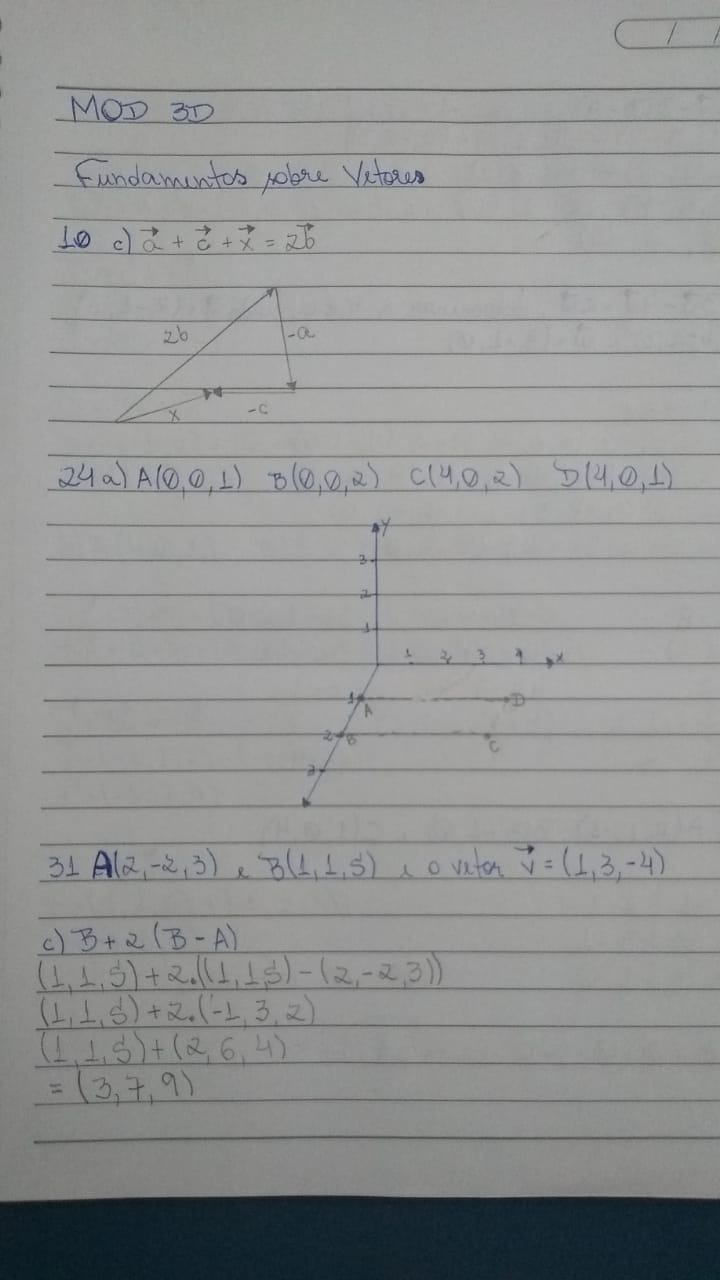 MOD 3D
Fundamentos sobre Vetores
10 c) a⃗ + c⃗ + x⃗ = 2b⃗
2b
-a
x
-c
24 a) A(0,0,1) B(0,0,2) C(4,0,2) D(4,0,1)
y
3
2
1
1 2 3 4 x
1 A D
2 B C
3
31 A(2,-2,3) e B(1,1,5) e o vetor v⃗ = (1,3,-4)
c) B + 2 (B - A)
(1,1,5) + 2.((1,1,5) - (2,-2,3))
(1,1,5) + 2.(-1,3,2)
(1,1,5) + (2,6,4)
= (3,7,9)